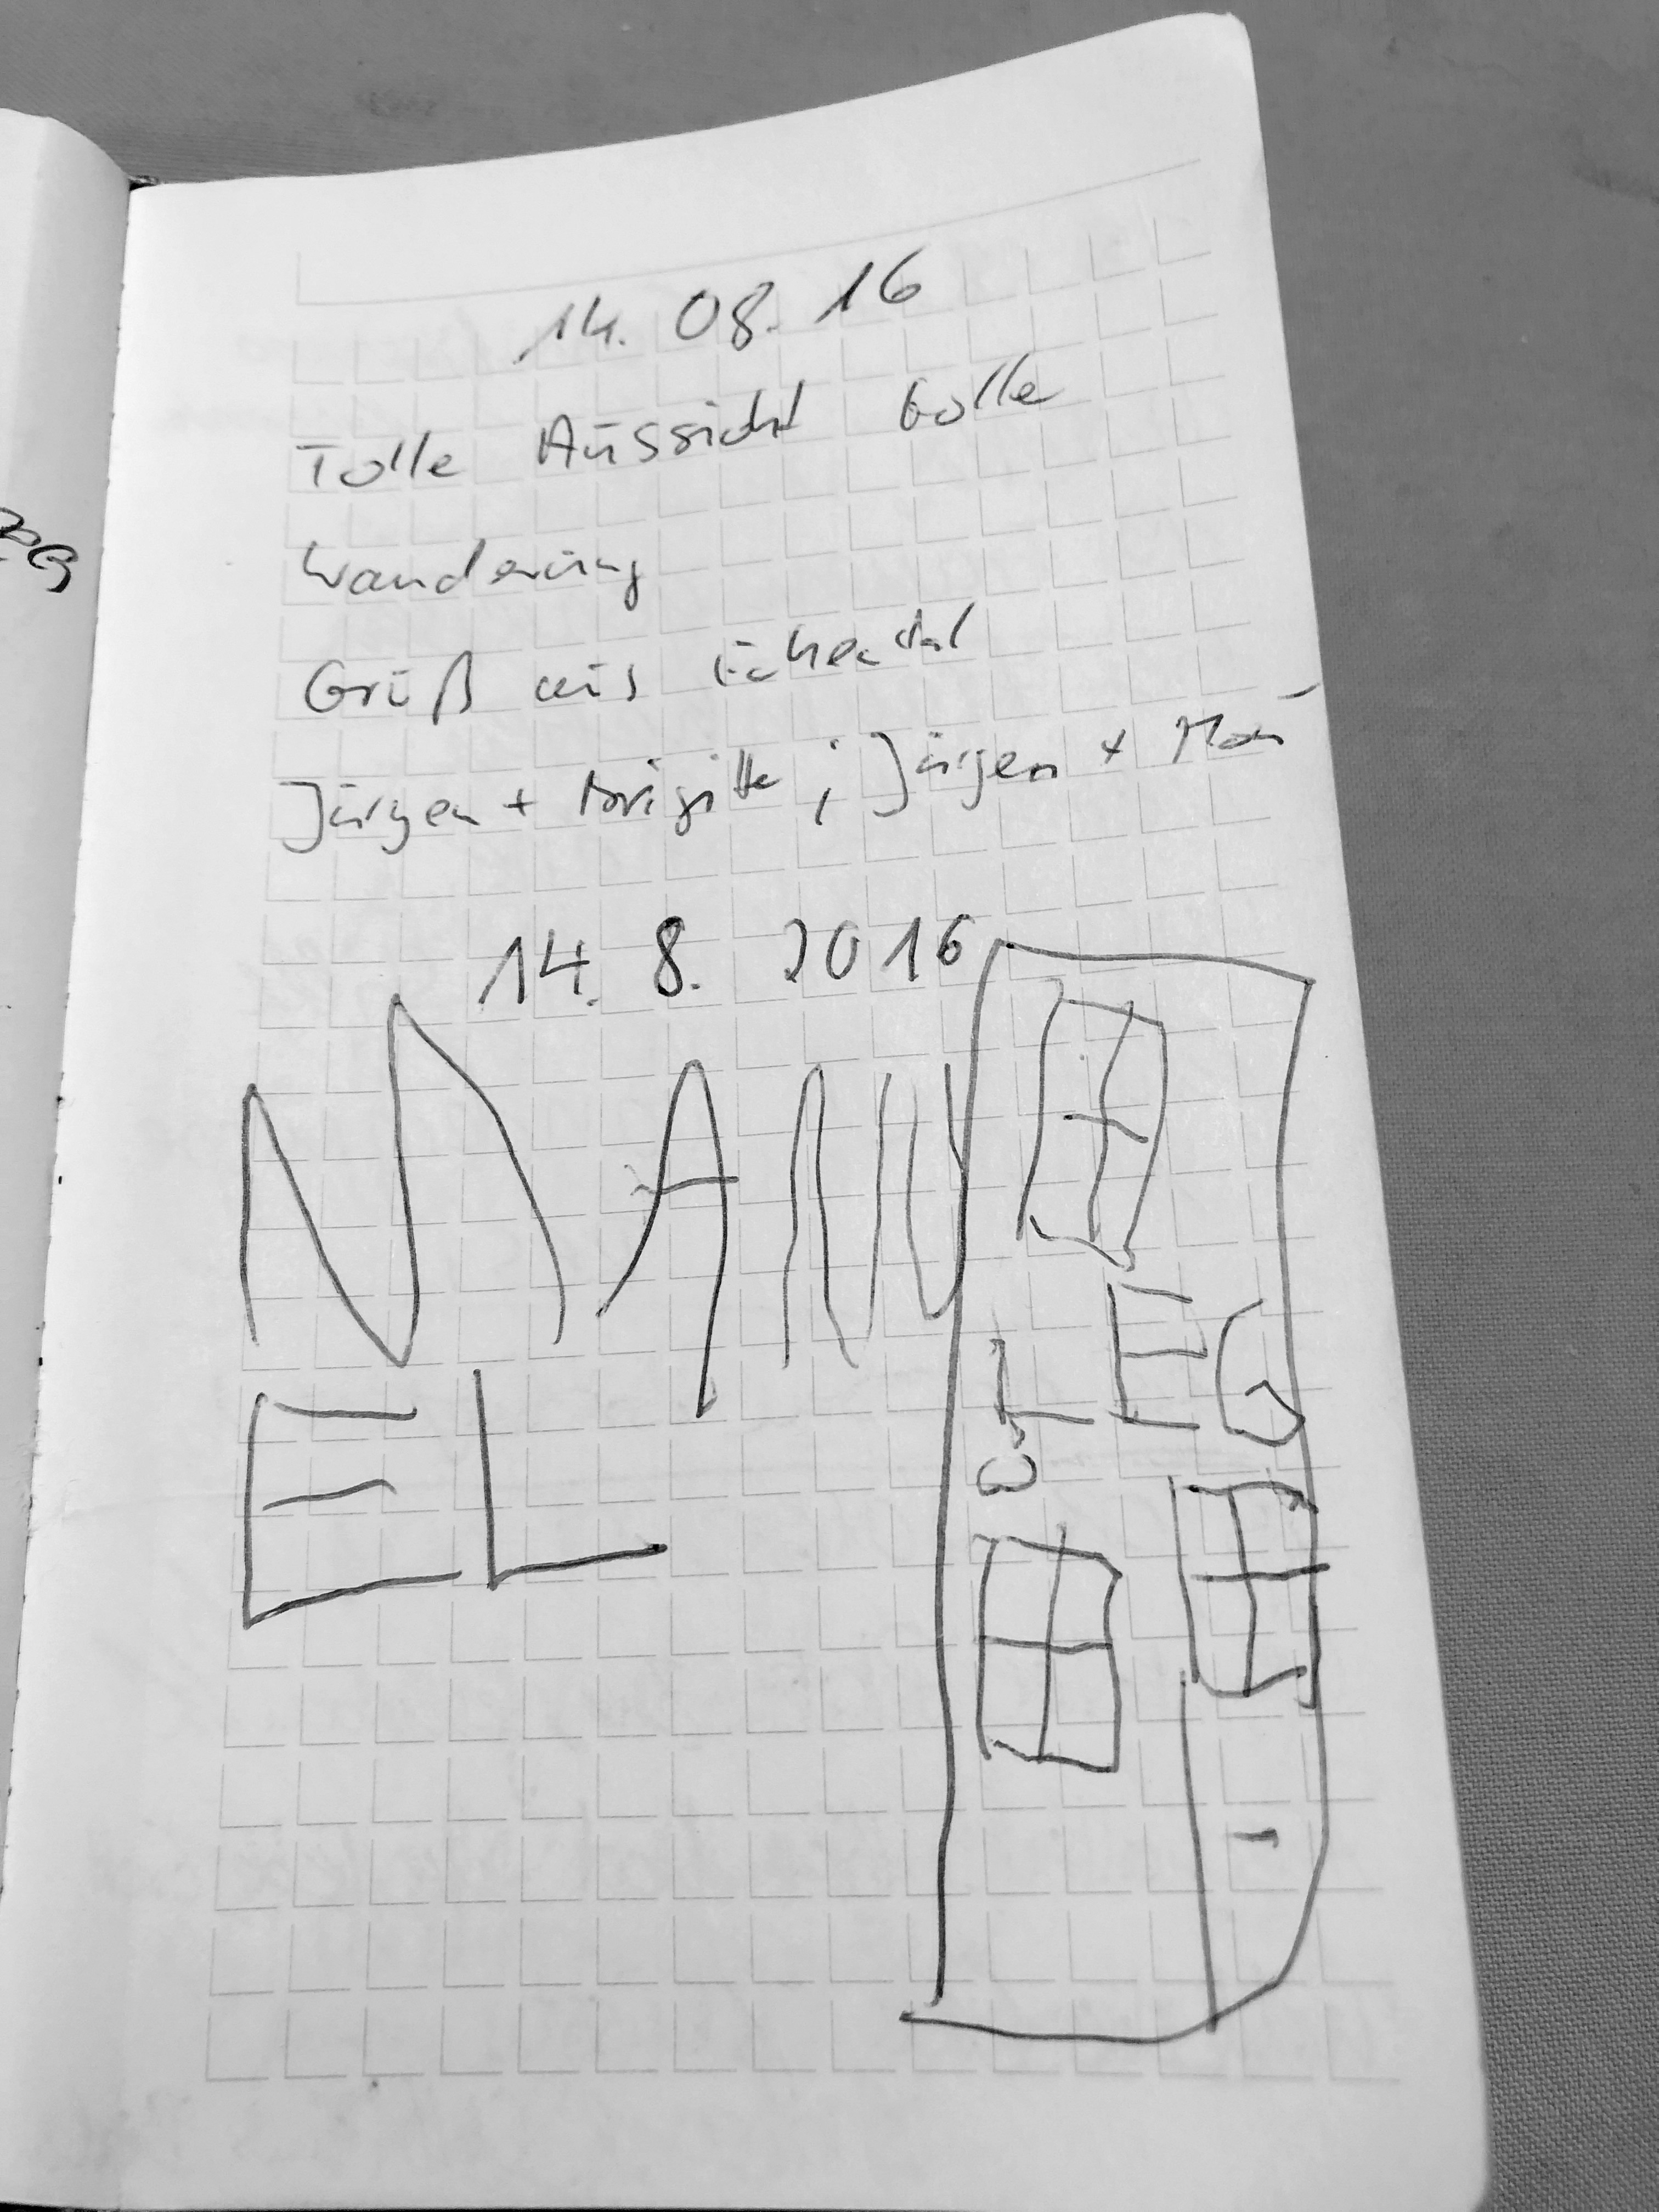 14. 08. 16
Tolle Aussicht tolle
Wanderung
Gruß aus
Jürgen + Brigitte ; Jürgen +
14. 8. 2016
MANU
EL
LEG